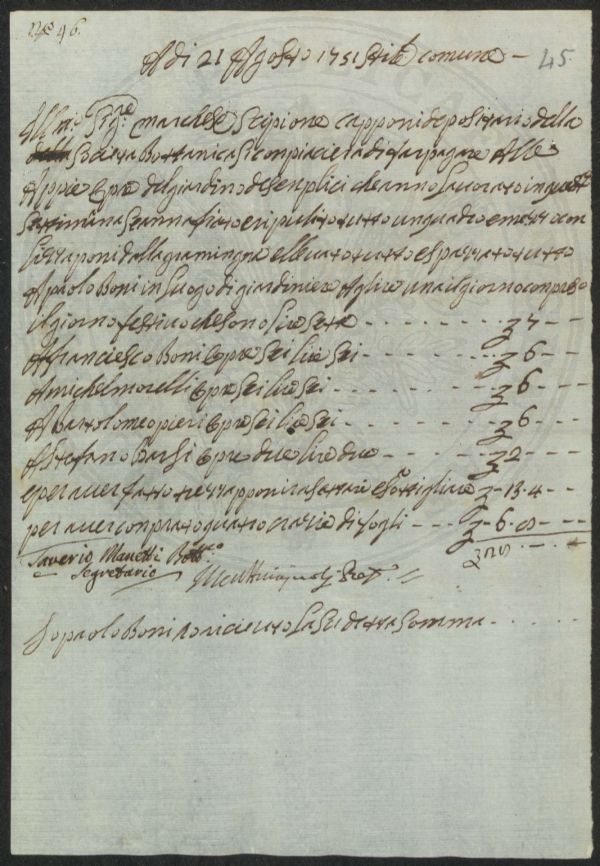 N.o 46.
A di 21 Agosto 1751 stile comune - 45
Ill.mo Sig.re marchese Scipione capponi depositario della
della Società Bottanica si conpiacierà di far pagare Alle
Appie opre del giardino de senplici che anno Lavorato in questa
Settimina e anno fiorito e ripulito tutto un quadro e messo con
li zzaponi dalla gramingna e lleuato tutto e spazzato tutto
A paolo Boni in Luogo di giardiniere A lire una il giorno conpreso
il giorno festiuo che sono lire Sette - - - - - - 7 - -
A franciesco Boni opre Sei lire Sei - - - - - 6 - -
A michel morelli opre Sei lire Sei - - - - - 6 - -
A Bartolomeo pieri opre Sei lire Sei - - - - - 6 - -
A Stefano Bassi opre due lire due - - - - - 2 - -
e per auer fatto tre zzapponi rasettare e Sottigliare - 13. 4 - -
per auer conprato quatro crazie di fogli - - - - 6. 8 - -
Saverio Manetti Bott.co
Segretario
Io paolo Boni o riceuto La Sudetta Somma - - - - -